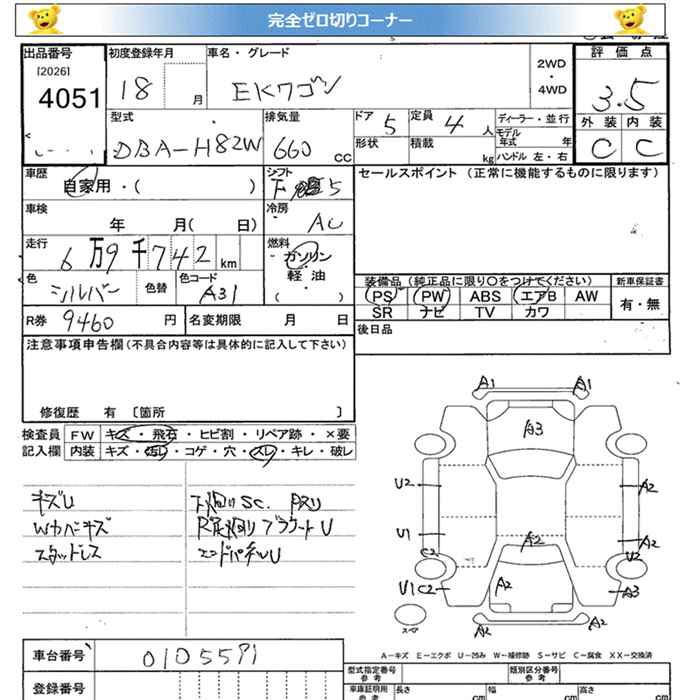 完全ゼロ切りコーナー
出品番号 初度登録年月 車名・グレード 2WD 評価点
[2026] ・
4051 18 月 EKワゴン 4WD 3.5
型式 排気量 ドア 5 定員 4 人 ディーラー・並行 外装 内装
DBA-H82W 660 cc 形状 積載 kg モデル年式 年 C C
ハンドル 左・右
車歴 シフト セールスポイント (正常に機能するものに限ります)
自家用・( ) F 5
車検 冷房
年 月( 日) AC
走行 燃料
6万9千742km ガソリン
色 色替 色コード 軽・油
シルバー A31 ( )
装備品 (純正品に限り○をつけてください) 新車保証書
PS PW ABS エアB AW 有・無
SR ナビ TV カワ
R券 9460 円 名変期限 月 日 後日品
注意事項申告欄(不具合内容等は具体的に記入して下さい)
修復歴 有 〔箇所 〕
検査員 FW キズ・飛石・ヒビ割・リペア跡・×要
記入欄 内装 キズ・汚レ・コゲ・穴・スレ・キレ・破レ
キズU 下廻りSC.
Wカバーキズ
スタッドレス エンドパネルU
A1 A1
A3
U2 A2
U1 A2 A2
C2 U2
U1 C2 A2 A3
スペア A2 A2
A-キズ E-エクボ U-凹み W-補修跡 S-サビ C-腐食 XX-交換済
車台番号 0105591 型式指定番号 参考 類別区分番号 参考
登録番号 車庫証明用 参考 長さ cm 幅 cm 高さ cm